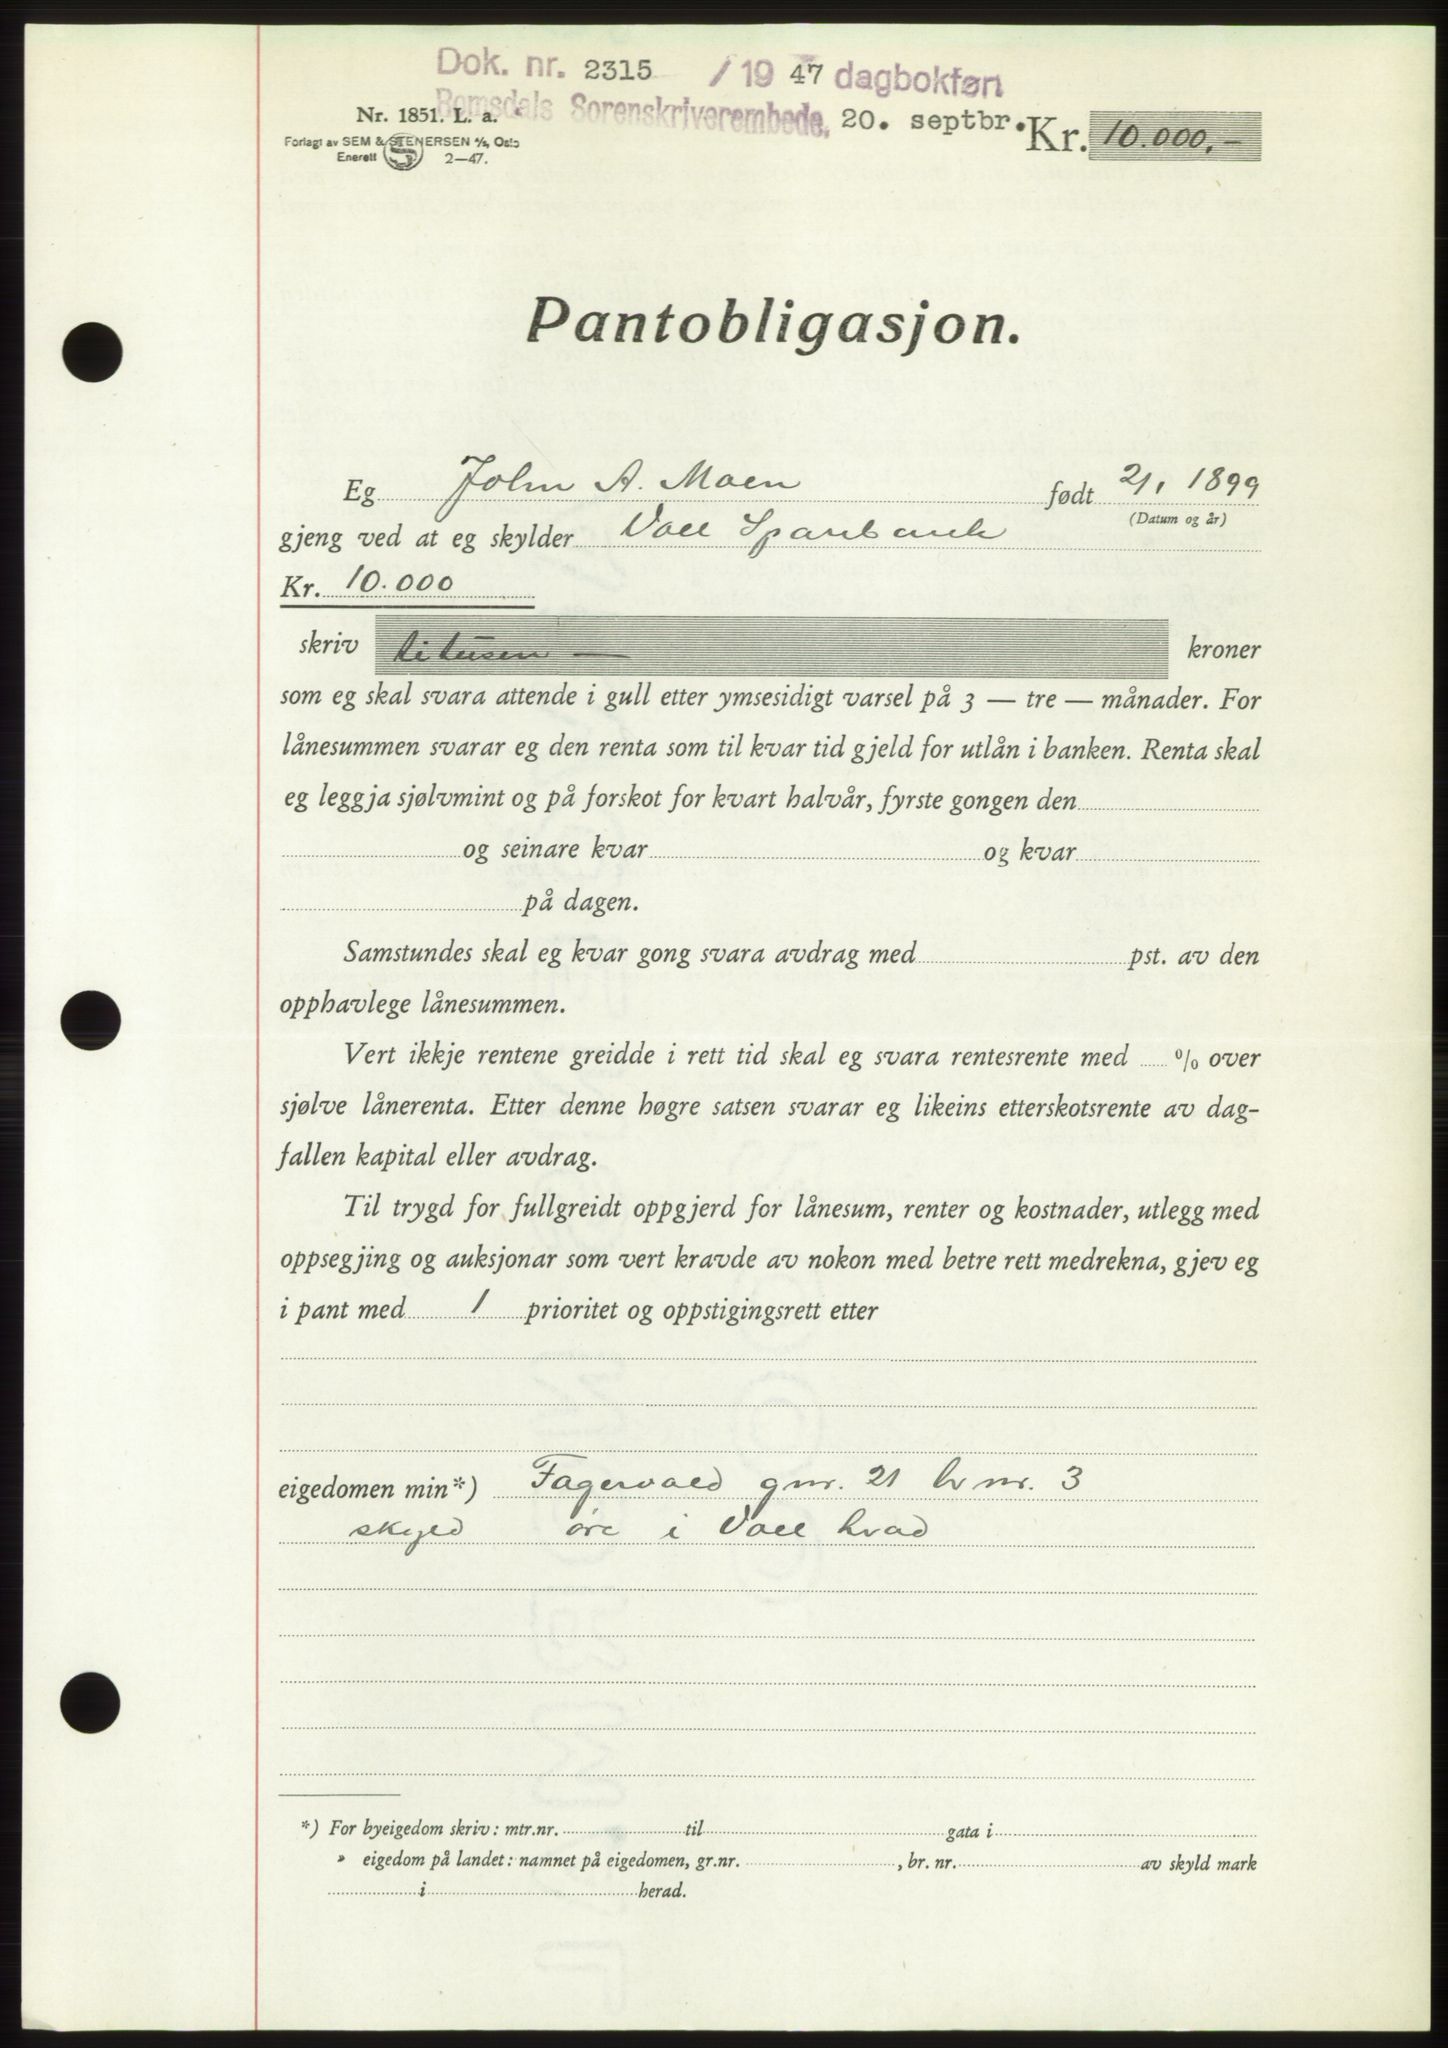 Dok. nr. 2315 / 19 47 dagbokført
Romsdals Sorenskriverembede, 20. septbr.
Nr. 1851. L. a.
Forlagt av SEM & STENERSEN A/S, Oslo
Enerett 2—47.
Kr. 10.000,-
Pantobligasjon.
Eg John A. Moen født 21, 1899
(Datum og år)
gjeng ved at eg skylder Voll Sparebank
Kr. 10.000
skriv titusen — kroner
som eg skal svara attende i gull etter ymsesidigt varsel på 3 — tre — månader. For
lånesummen svarar eg den renta som til kvar tid gjeld for utlån i banken. Renta skal
eg leggja sjølvmint og på forskot for kvart halvår, fyrste gongen den
og seinare kvar og kvar
på dagen.
Samstundes skal eg kvar gong svara avdrag med pst. av den
opphavlege lånesummen.
Vert ikkje rentene greidde i rett tid skal eg svara rentesrente med % over
sjølve lånerenta. Etter denne høgre satsen svarar eg likeins etterskotsrente av dag-
fallen kapital eller avdrag.
Til trygd for fullgreidt oppgjerd for lånesum, renter og kostnader, utlegg med
oppsegjing og auksjonar som vert kravde av nokon med betre rett medrekna, gjev eg
i pant med 1 prioritet og oppstigingsrett etter
eigedomen min*) Fagervold gnr. 21 brnr. 3
skyld øre i Voll hrad
*) For byeigedom skriv: mtr.nr. til gata i
» eigedom på landet: namnet på eigedomen, gr.nr. , br. nr. av skyld mark
i herad.